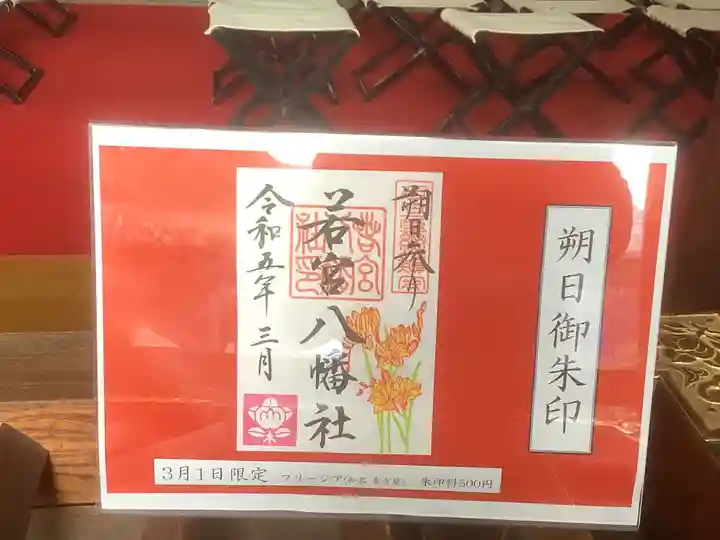 朔日御朱印
朔日参り
若宮八幡社
令和五年三月
3月1日限定 フリージア(和名 香雪蘭) 朱印料500円